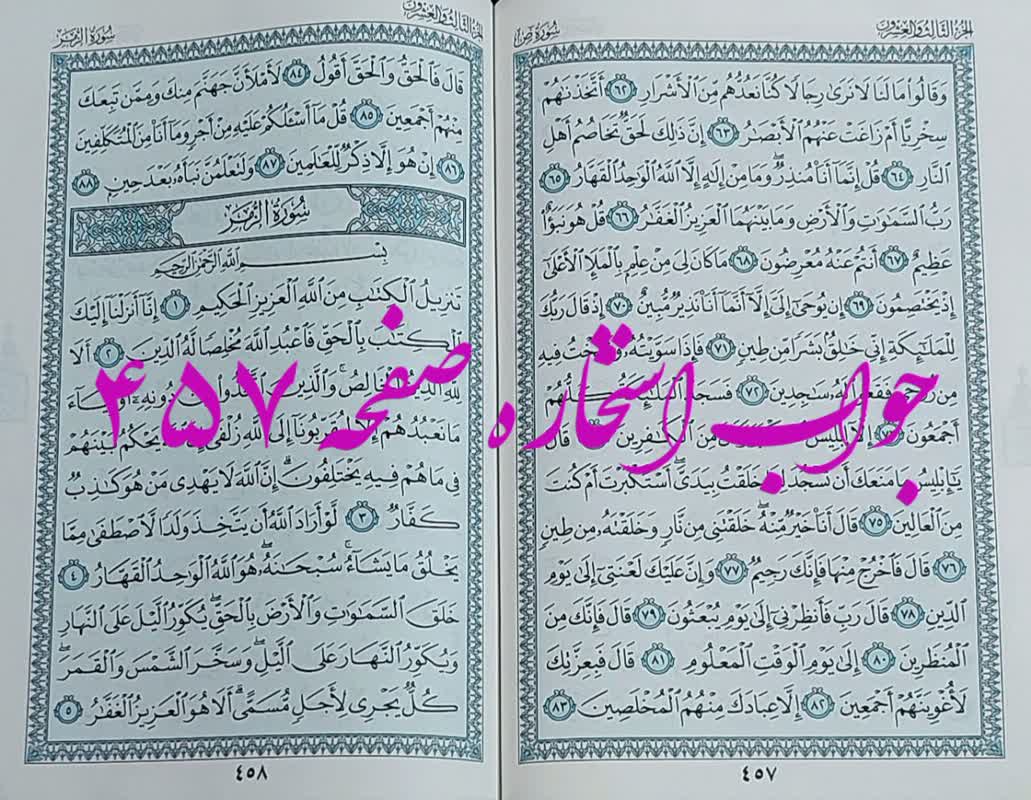 الجزء الثالث والعشرون
سورة ص
وَقَالُوا۟ مَا لَنَا لَا نَرَىٰ رِجَالًا كُنَّا نَعُدُّهُم مِّنَ ٱلْأَشْرَارِ ٦٢ أَتَّخَذْنَٰهُمْ
سِخْرِيًّا أَمْ زَاغَتْ عَنْهُمُ ٱلْأَبْصَٰرُ ٦٣ إِنَّ ذَٰلِكَ لَحَقٌّ تَخَاصُمُ أَهْلِ
ٱلنَّارِ ٦٤ قُلْ إِنَّمَآ أَنَا۠ مُنذِرٌ وَمَا مِنْ إِلَٰهٍ إِلَّا ٱللَّهُ ٱلْوَٰحِدُ ٱلْقَهَّارُ ٦٥
رَبُّ ٱلسَّمَٰوَٰتِ وَٱلْأَرْضِ وَمَا بَيْنَهُمَا ٱلْعَزِيزُ ٱلْغَفَّٰرُ ٦٦ قُلْ هُوَ نَبَؤٌا۟
عَظِيمٌ ٦٧ أَنتُمْ عَنْهُ مُعْرِضُونَ ٦٨ مَا كَانَ لِىَ مِنْ عِلْمٍۭ بِٱلْمَلَإِ ٱلْأَعْلَىٰٓ
إِذْ يَخْتَصِمُونَ ٦٩ إِن يُوحَىٰٓ إِلَىَّ إِلَّآ أَنَّمَآ أَنَا۠ نَذِيرٌ مُّبِينٌ ٧٠ إِذْ قَالَ رَبُّكَ
لِلْمَلَٰٓئِكَةِ إِنِّى خَٰلِقٌۢ بَشَرًا مِّن طِينٍ ٧١ فَإِذَا سَوَّيْتُهُۥ وَنَفَخْتُ فِيهِ
مِن رُّوحِى فَقَعُوا۟ لَهُۥ سَٰجِدِينَ ٧٢ فَسَجَدَ ٱلْمَلَٰٓئِكَةُ كُلُّهُمْ
أَجْمَعُونَ ٧٣ إِلَّآ إِبْلِيسَ ٱسْتَكْبَرَ وَكَانَ مِنَ ٱلْكَٰفِرِينَ ٧٤ قَالَ
يَٰٓإِبْلِيسُ مَا مَنَعَكَ أَن تَسْجُدَ لِمَا خَلَقْتُ بِيَدَىَّ أَسْتَكْبَرْتَ أَمْ كُنتَ
مِنَ ٱلْعَالِينَ ٧٥ قَالَ أَنَا۠ خَيْرٌ مِّنْهُ خَلَقْتَنِى مِن نَّارٍ وَخَلَقْتَهُۥ مِن طِينٍ
٧٦ قَالَ فَٱخْرُجْ مِنْهَا فَإِنَّكَ رَجِيمٌ ٧٧ وَإِنَّ عَلَيْكَ لَعْنَتِىٓ إِلَىٰ يَوْمِ
ٱلدِّينِ ٧٨ قَالَ رَبِّ فَأَنظِرْنِىٓ إِلَىٰ يَوْمِ يُبْعَثُونَ ٧٩ قَالَ فَإِنَّكَ مِنَ
ٱلْمُنظَرِينَ ٨٠ إِلَىٰ يَوْمِ ٱلْوَقْتِ ٱلْمَعْلُومِ ٨١ قَالَ فَبِعِزَّتِكَ
لَأُغْوِيَنَّهُمْ أَجْمَعِينَ ٨٢ إِلَّا عِبَادَكَ مِنْهُمُ ٱلْمُخْلَصِينَ ٨٣
٤٥٧
الجزء الثالث والعشرون
سورة الزمر
قَالَ فَٱلْحَقُّ وَٱلْحَقَّ أَقُولُ ٨٤ لَأَمْلَأَنَّ جَهَنَّمَ مِنكَ وَمِمَّن تَبِعَكَ
مِنْهُمْ أَجْمَعِينَ ٨٥ قُلْ مَآ أَسْـَٔلُكُمْ عَلَيْهِ مِنْ أَجْرٍ وَمَآ أَنَا۠ مِنَ ٱلْمُتَكَلِّفِينَ
٨٦ إِنْ هُوَ إِلَّا ذِكْرٌ لِّلْعَٰلَمِينَ ٨٧ وَلَتَعْلَمُنَّ نَبَأَهُۥ بَعْدَ حِينٍۭ ٨٨
سورة الزمر
بِسْمِ ٱللَّهِ ٱلرَّحْمَٰنِ ٱلرَّحِيمِ
تَنزِيلُ ٱلْكِتَٰبِ مِنَ ٱللَّهِ ٱلْعَزِيزِ ٱلْحَكِيمِ ١ إِنَّآ أَنزَلْنَآ إِلَيْكَ
ٱلْكِتَٰبَ بِٱلْحَقِّ فَٱعْبُدِ ٱللَّهَ مُخْلِصًا لَّهُ ٱلدِّينَ ٢ أَلَا
لِلَّهِ ٱلدِّينُ ٱلْخَالِصُ وَٱلَّذِينَ ٱتَّخَذُوا۟ مِن دُونِهِۦٓ أَوْلِيَآءَ
مَا نَعْبُدُهُمْ إِلَّا لِيُقَرِّبُونَآ إِلَى ٱللَّهِ زُلْفَىٰٓ إِنَّ ٱللَّهَ يَحْكُمُ بَيْنَهُمْ
فِى مَا هُمْ فِيهِ يَخْتَلِفُونَ إِنَّ ٱللَّهَ لَا يَهْدِى مَنْ هُوَ كَٰذِبٌ
كَفَّارٌ ٣ لَّوْ أَرَادَ ٱللَّهُ أَن يَتَّخِذَ وَلَدًا لَّٱصْطَفَىٰ مِمَّا
يَخْلُقُ مَا يَشَآءُ سُبْحَٰنَهُۥ هُوَ ٱللَّهُ ٱلْوَٰحِدُ ٱلْقَهَّارُ ٤
خَلَقَ ٱلسَّمَٰوَٰتِ وَٱلْأَرْضَ بِٱلْحَقِّ يُكَوِّرُ ٱلَّيْلَ عَلَى ٱلنَّهَارِ
وَيُكَوِّرُ ٱلنَّهَارَ عَلَى ٱلَّيْلِ وَسَخَّرَ ٱلشَّمْسَ وَٱلْقَمَرَ
كُلٌّ يَجْرِى لِأَجَلٍ مُّسَمًّى أَلَا هُوَ ٱلْعَزِيزُ ٱلْغَفَّٰرُ ٥
٤٥٨
جواب استخاره صفحه ۴۵۷